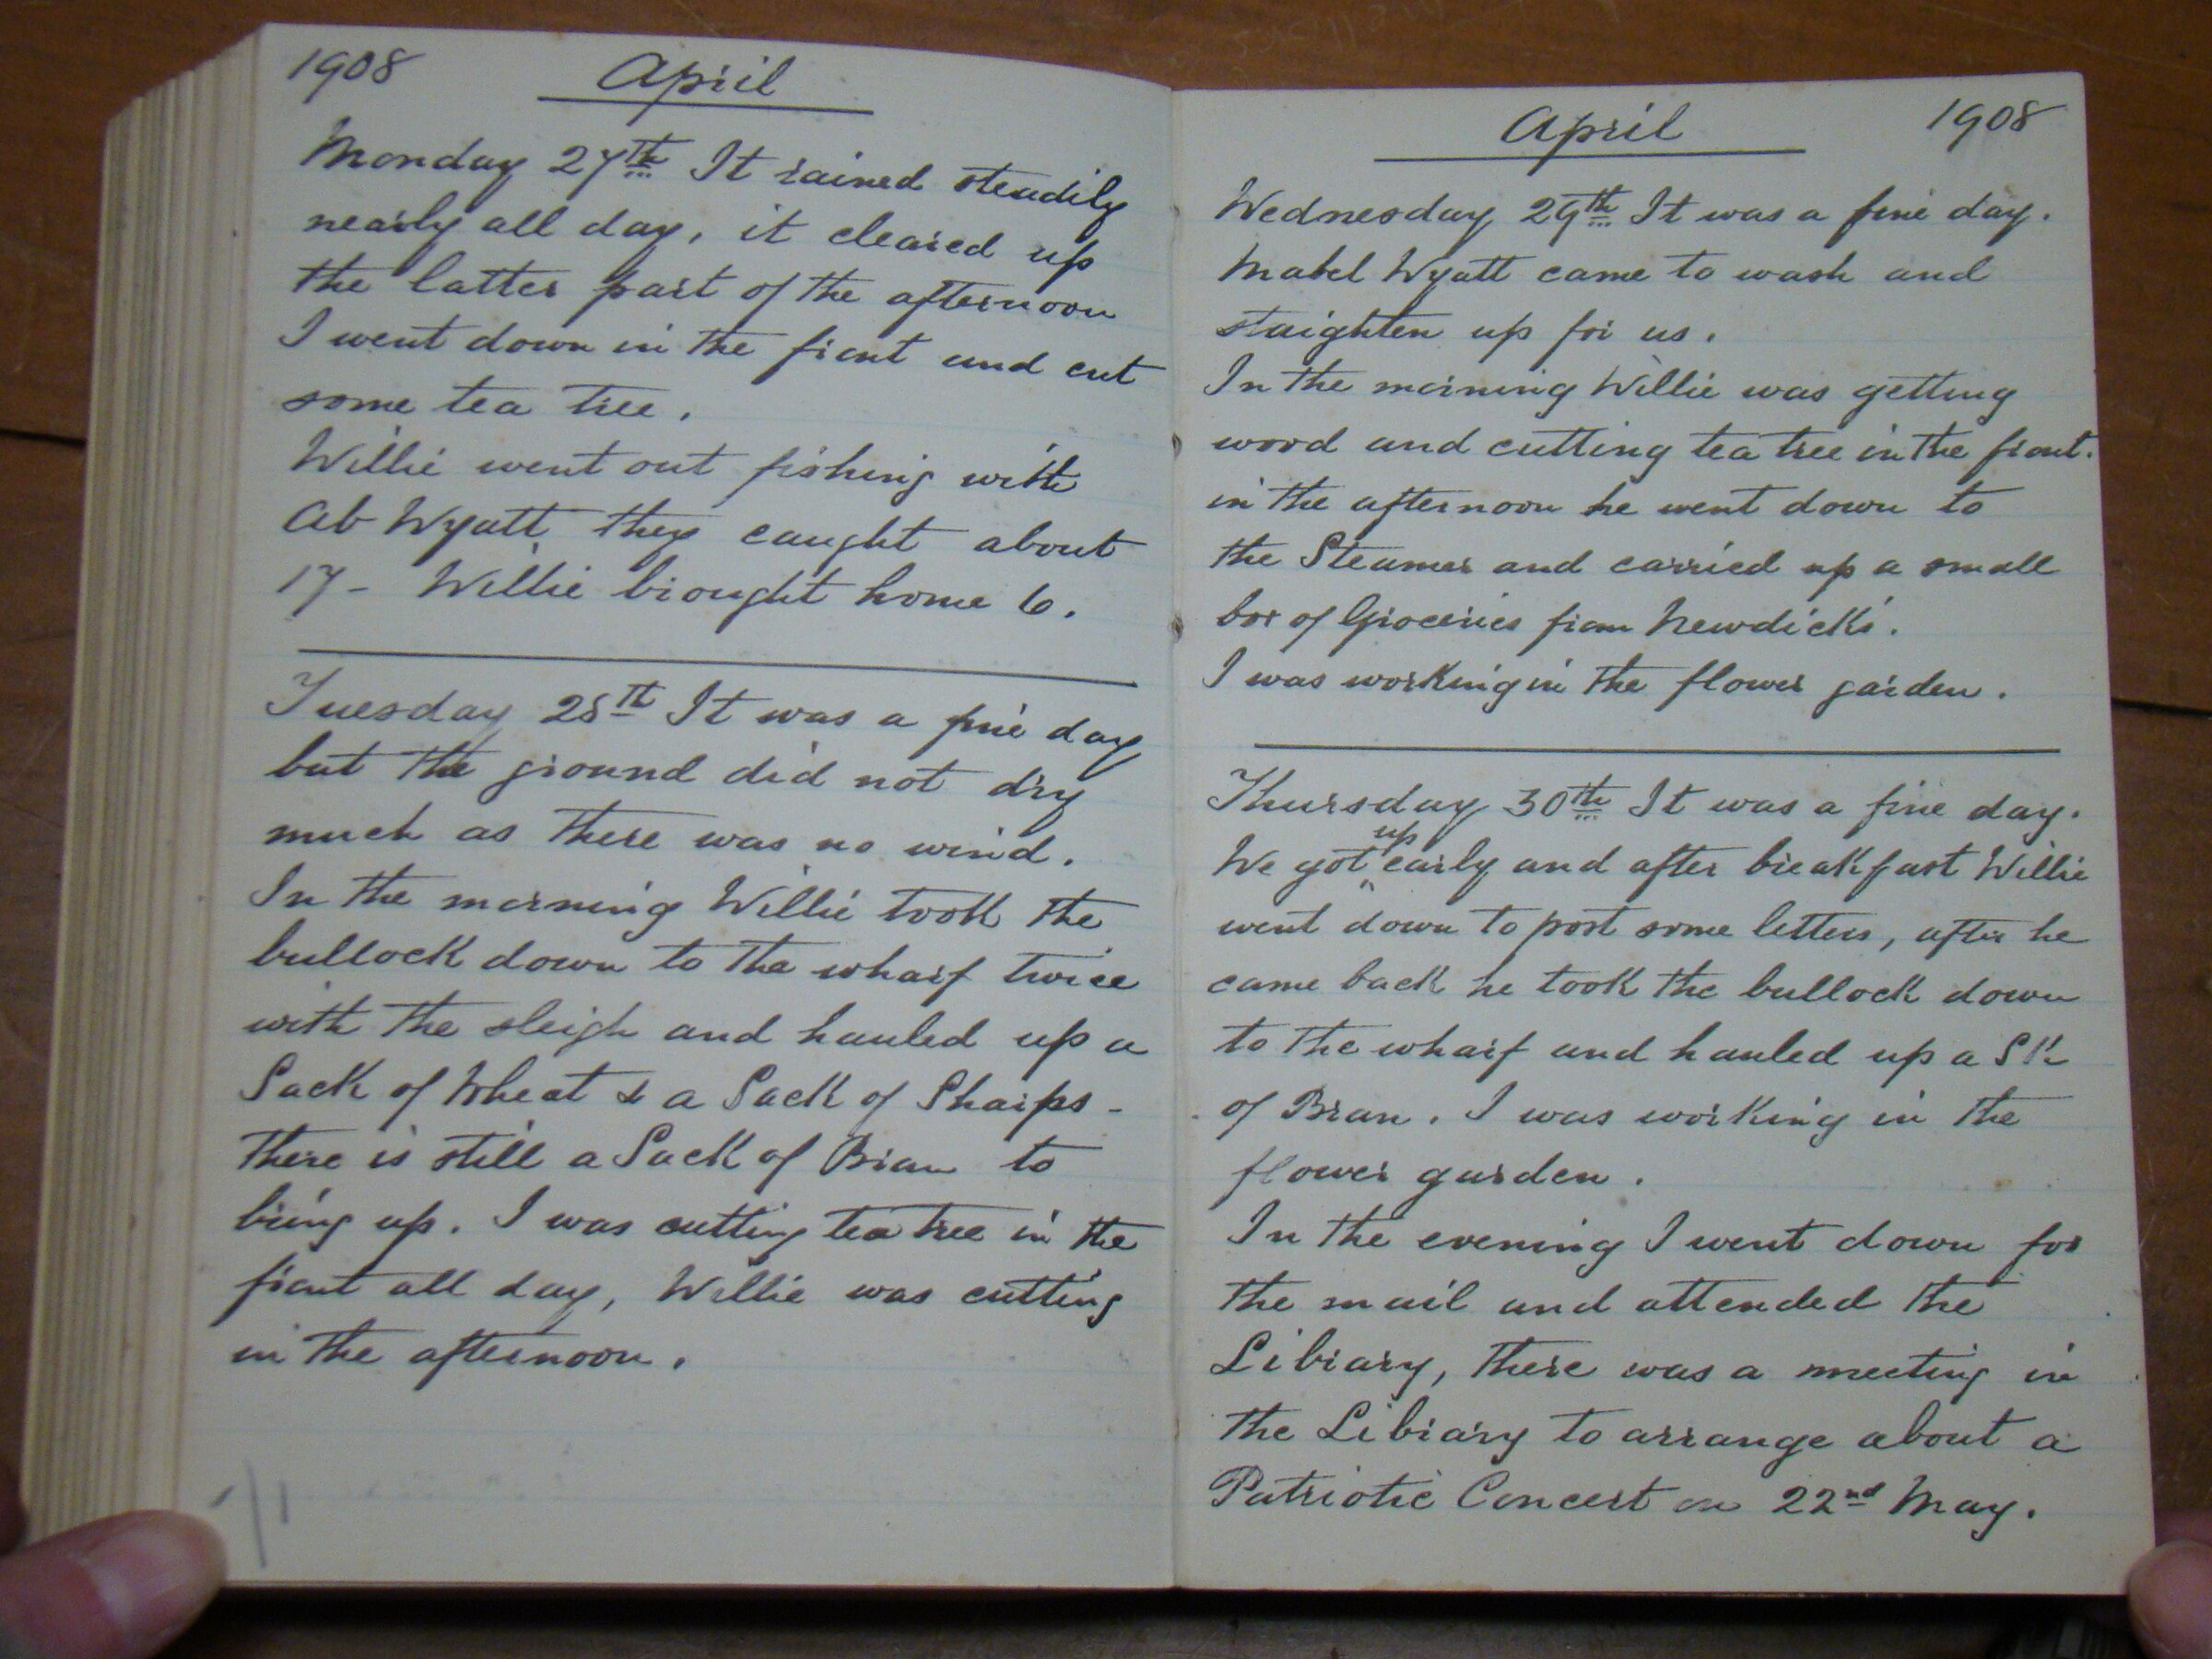 1908 April
Monday 27th It rained steadily
nearly all day, it cleared up
the latter part of the afternoon
I went down in the front and cut
some tea tree.
Willie went out fishing with
Ab Wyatt they caught about
17 - Willie brought home 6.
Tuesday 28th It was a fine day
but the ground did not dry
much as there was no wind.
In the morning Willie took the
bullock down to the wharf twice
with the sleigh and hauled up a
Sack of Wheat & a Sack of Sharps -
there is still a Sack of Bran to
bring up. I was cutting tea tree in the
front all day, Willie was cutting
in the afternoon.
April 1908
Wednesday 29th It was a fine day.
Mabel Wyatt came to wash and
staighten up for us.
In the morning Willie was getting
wood and cutting tea tree in the front.
in the afternoon he went down to
the Steamer and carried up a small
box of Groceries from Newdick's.
I was working in the flower garden.
Thursday 30th It was a fine day.
We got up early and after breakfast Willie
went down to post some letters, after he
came back he took the bullock down
to the wharf and hauled up a Sk
of Bran. I was working in the
flower garden.
In the evening I went down for
the mail and attended the
Library, there was a meeting in
the Library to arrange about a
Patriotic Concert on 22nd May.